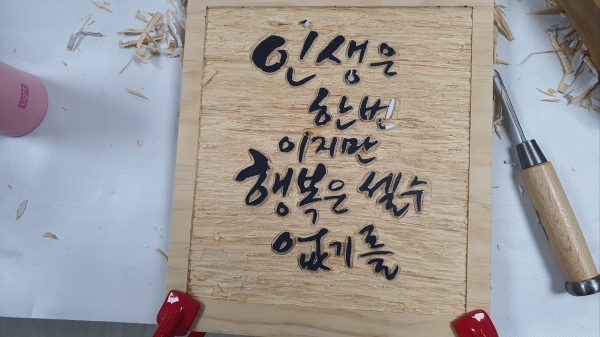 인생은
한번
이지만
행복은 셀수
없기를